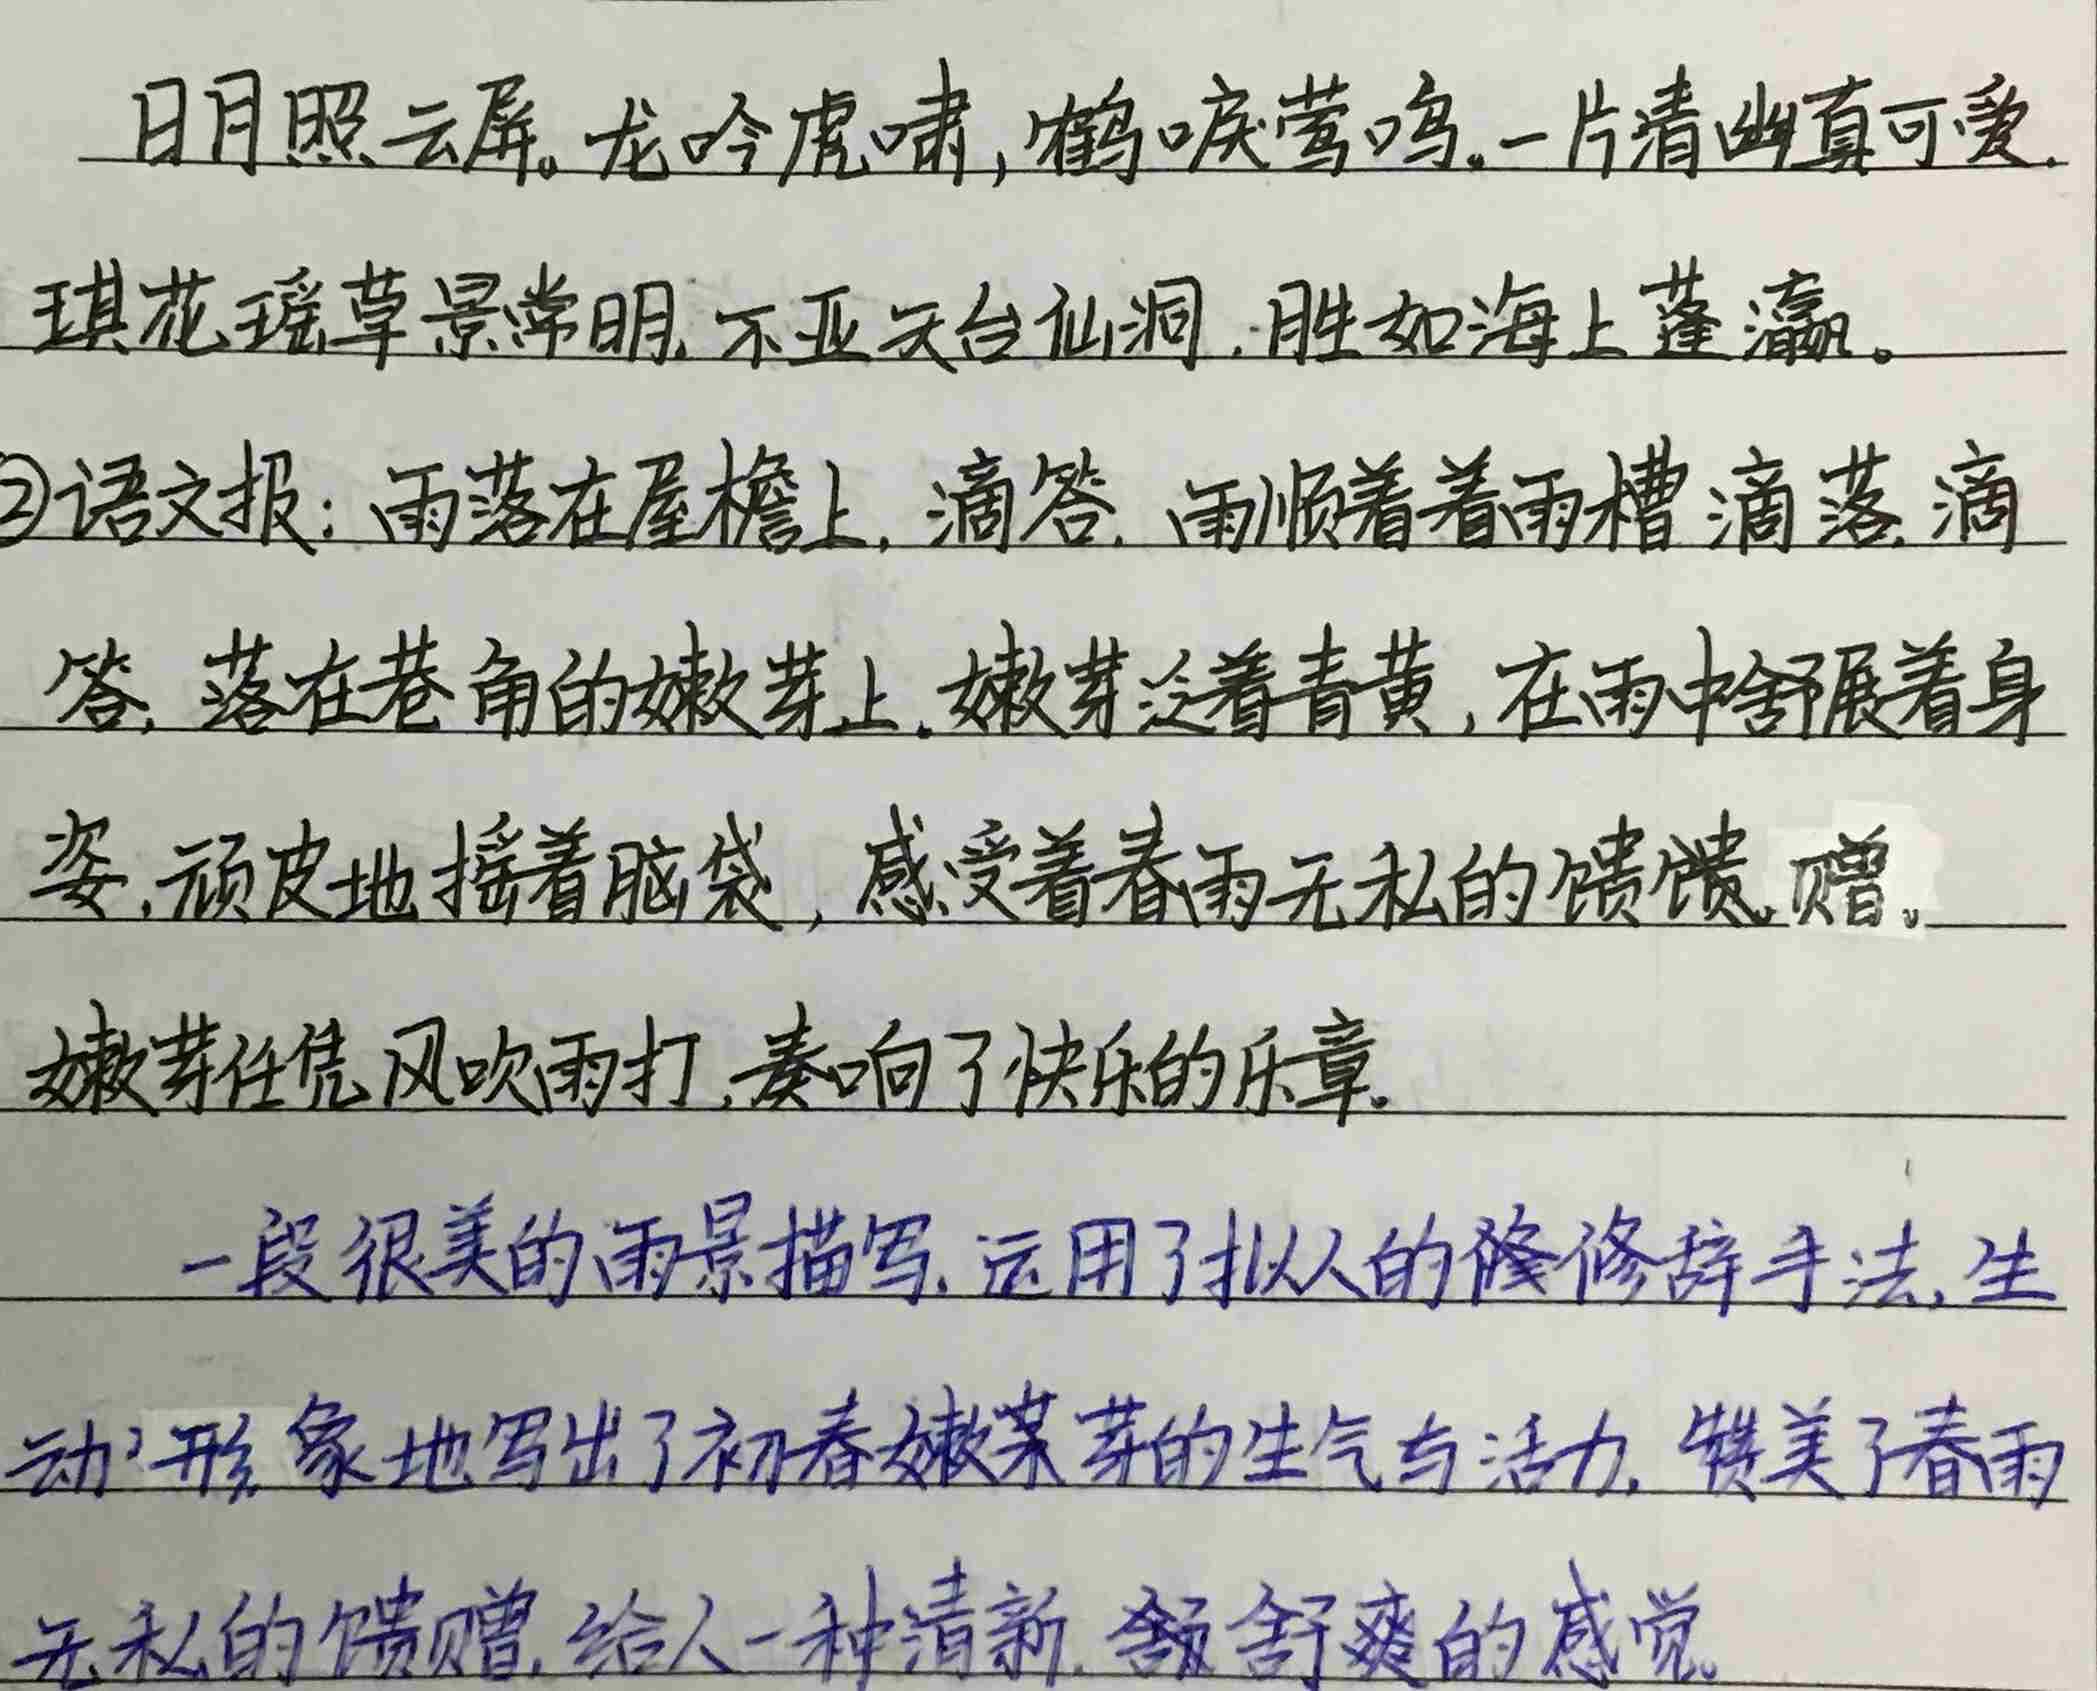 日月照云屏。龙吟虎啸，鹤唳莺鸣。一片清幽真可爱，
琪花瑶草景常明，不亚天台仙洞，胜如海上蓬瀛。
②语文报：雨落在屋檐上，滴答，雨顺着着雨槽滴落，滴
答，落在巷角的嫩芽上，嫩芽泛着青黄，在雨中舒展着身
姿，顽皮地摇着脑袋，感受着春雨无私的馈馈。赠。
嫩芽任凭风吹雨打，奏响了快乐的乐章。
一段很美的雨景描写，运用了拟人的修辞手法，生
动形象地写出了初春嫩芽的生气与活力，赞美了春雨
无私的馈赠，给人一种清新，舒爽的感觉。